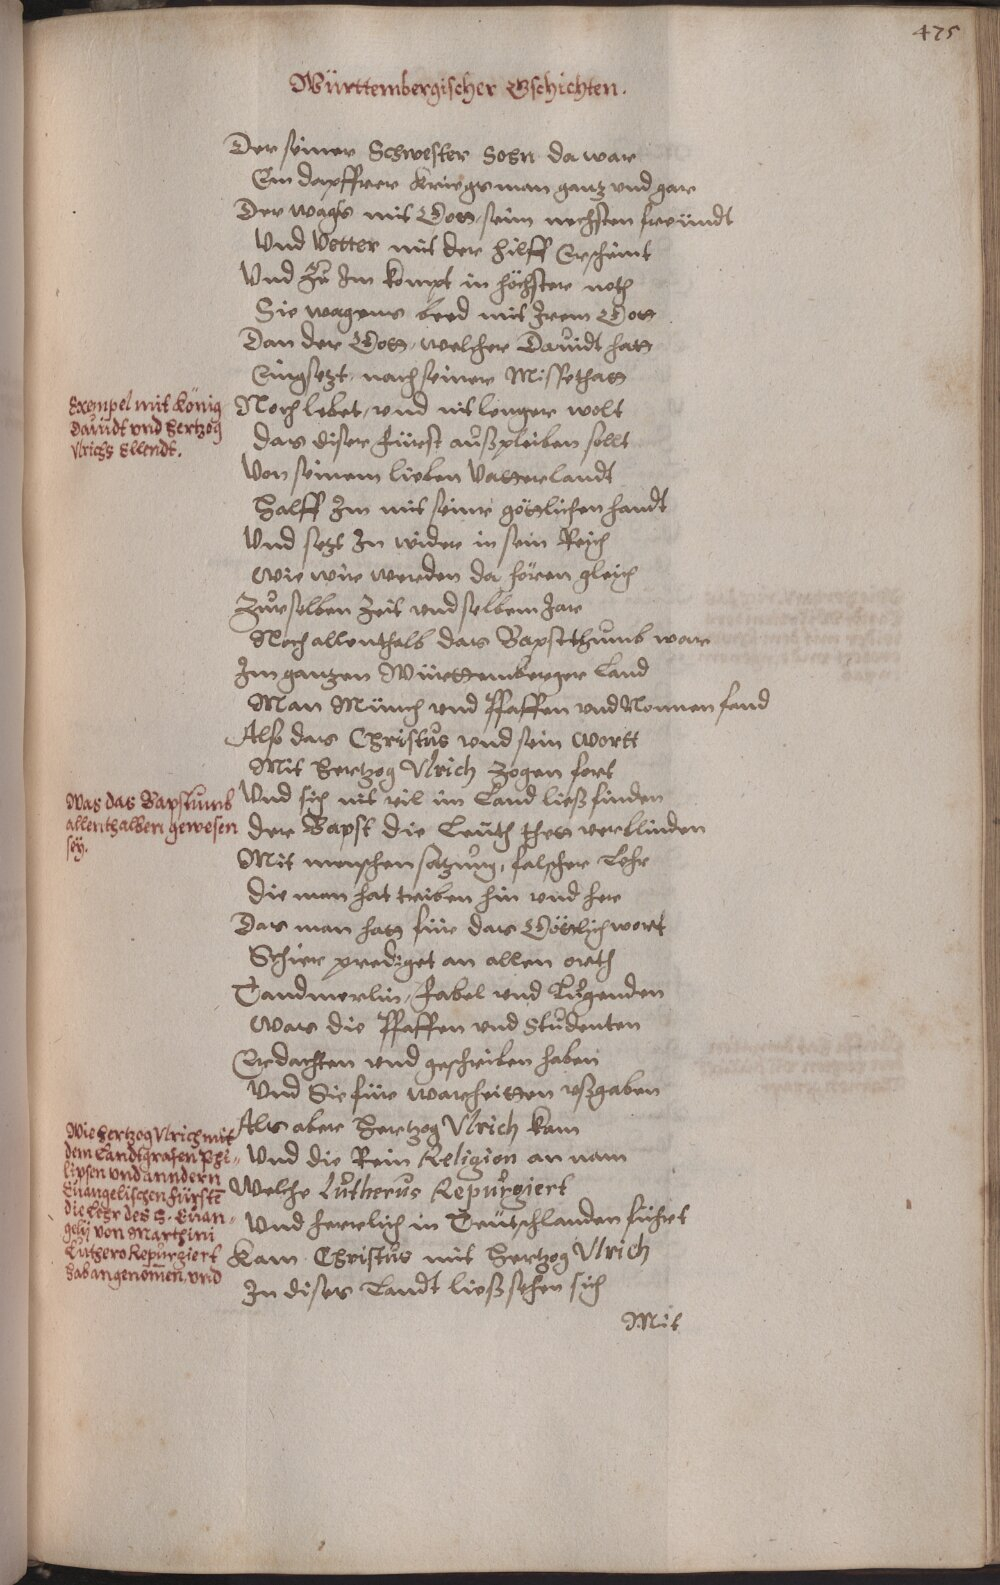 475
Württembergischer Gschichten.
Der seiner Schwester Sohn da war
Ein dapffrer Kriegsman gantz vnd gar
Der wagts mit Gott seim nechsten freündt
Vnd Vetter mit der hilff Erscheint
Vnd Zu Im kompt in höchster noth
Sie wagens beed mit Irem Gott
Dan der Gott, welcher Dauidt hatt
Eingsetzt, nach seiner Missethatt
Exempel mit König
Dauidt vnd Hertzog
Vlrichs Ellendt.
Noch lebet, vnd nit lenger wolt
das diser Fürst außpleiben sollt
Von seinem lieben Vatterlandt
Halff Im mit seiner göttlichen handt
Vnd setzt In wider in sein Reich
Wie wir werden da hören gleich
Zur selben Zeit vnd selbem Jar
Noch allenthalb das Bapstthumb war
Im gantzen Württemberger Land
Man Münch vnd Pfaffen vnd Nonnen fand
Also das Christus vnd sein wortt
Mit Hertzog Vlrich zogen fort
Was das Bapstumb
allenthalben gewesen
sey.
Vnd sich nit vil im Land ließ finden
der Bapst die Leuth thett verblinden
Mit menschen satzung, falscher Lehr
die man hat triben hin vnd her
Das man hatt für das Göttlich wort
Schier prediget an allen orth
Tandmerlin, fabel vnd Lugenden
Was die Pfaffen vnd Studenten
Erdachten vnd geschriben haben
Vnd Sie für warheitten vßgaben
Wie Hertzog Vlrich mit
dem Landtgrafen Phi-
lipsen vnd anndern
Euangelischen Fürstē
die Lehr des H. Euan-
gelij von Marthini
Luthero Repurgiert
hab angenom̄en, vnd
Als aber Hertzog Vlrich kam
Vnd die Rein Religion an nam
Welche Lutherus Repurgiert
Vnd herrlich in Teütschlanden führt
Kam Christus mit Hertzog Vlrich
In dises Landt ließ sehen sich
Mit